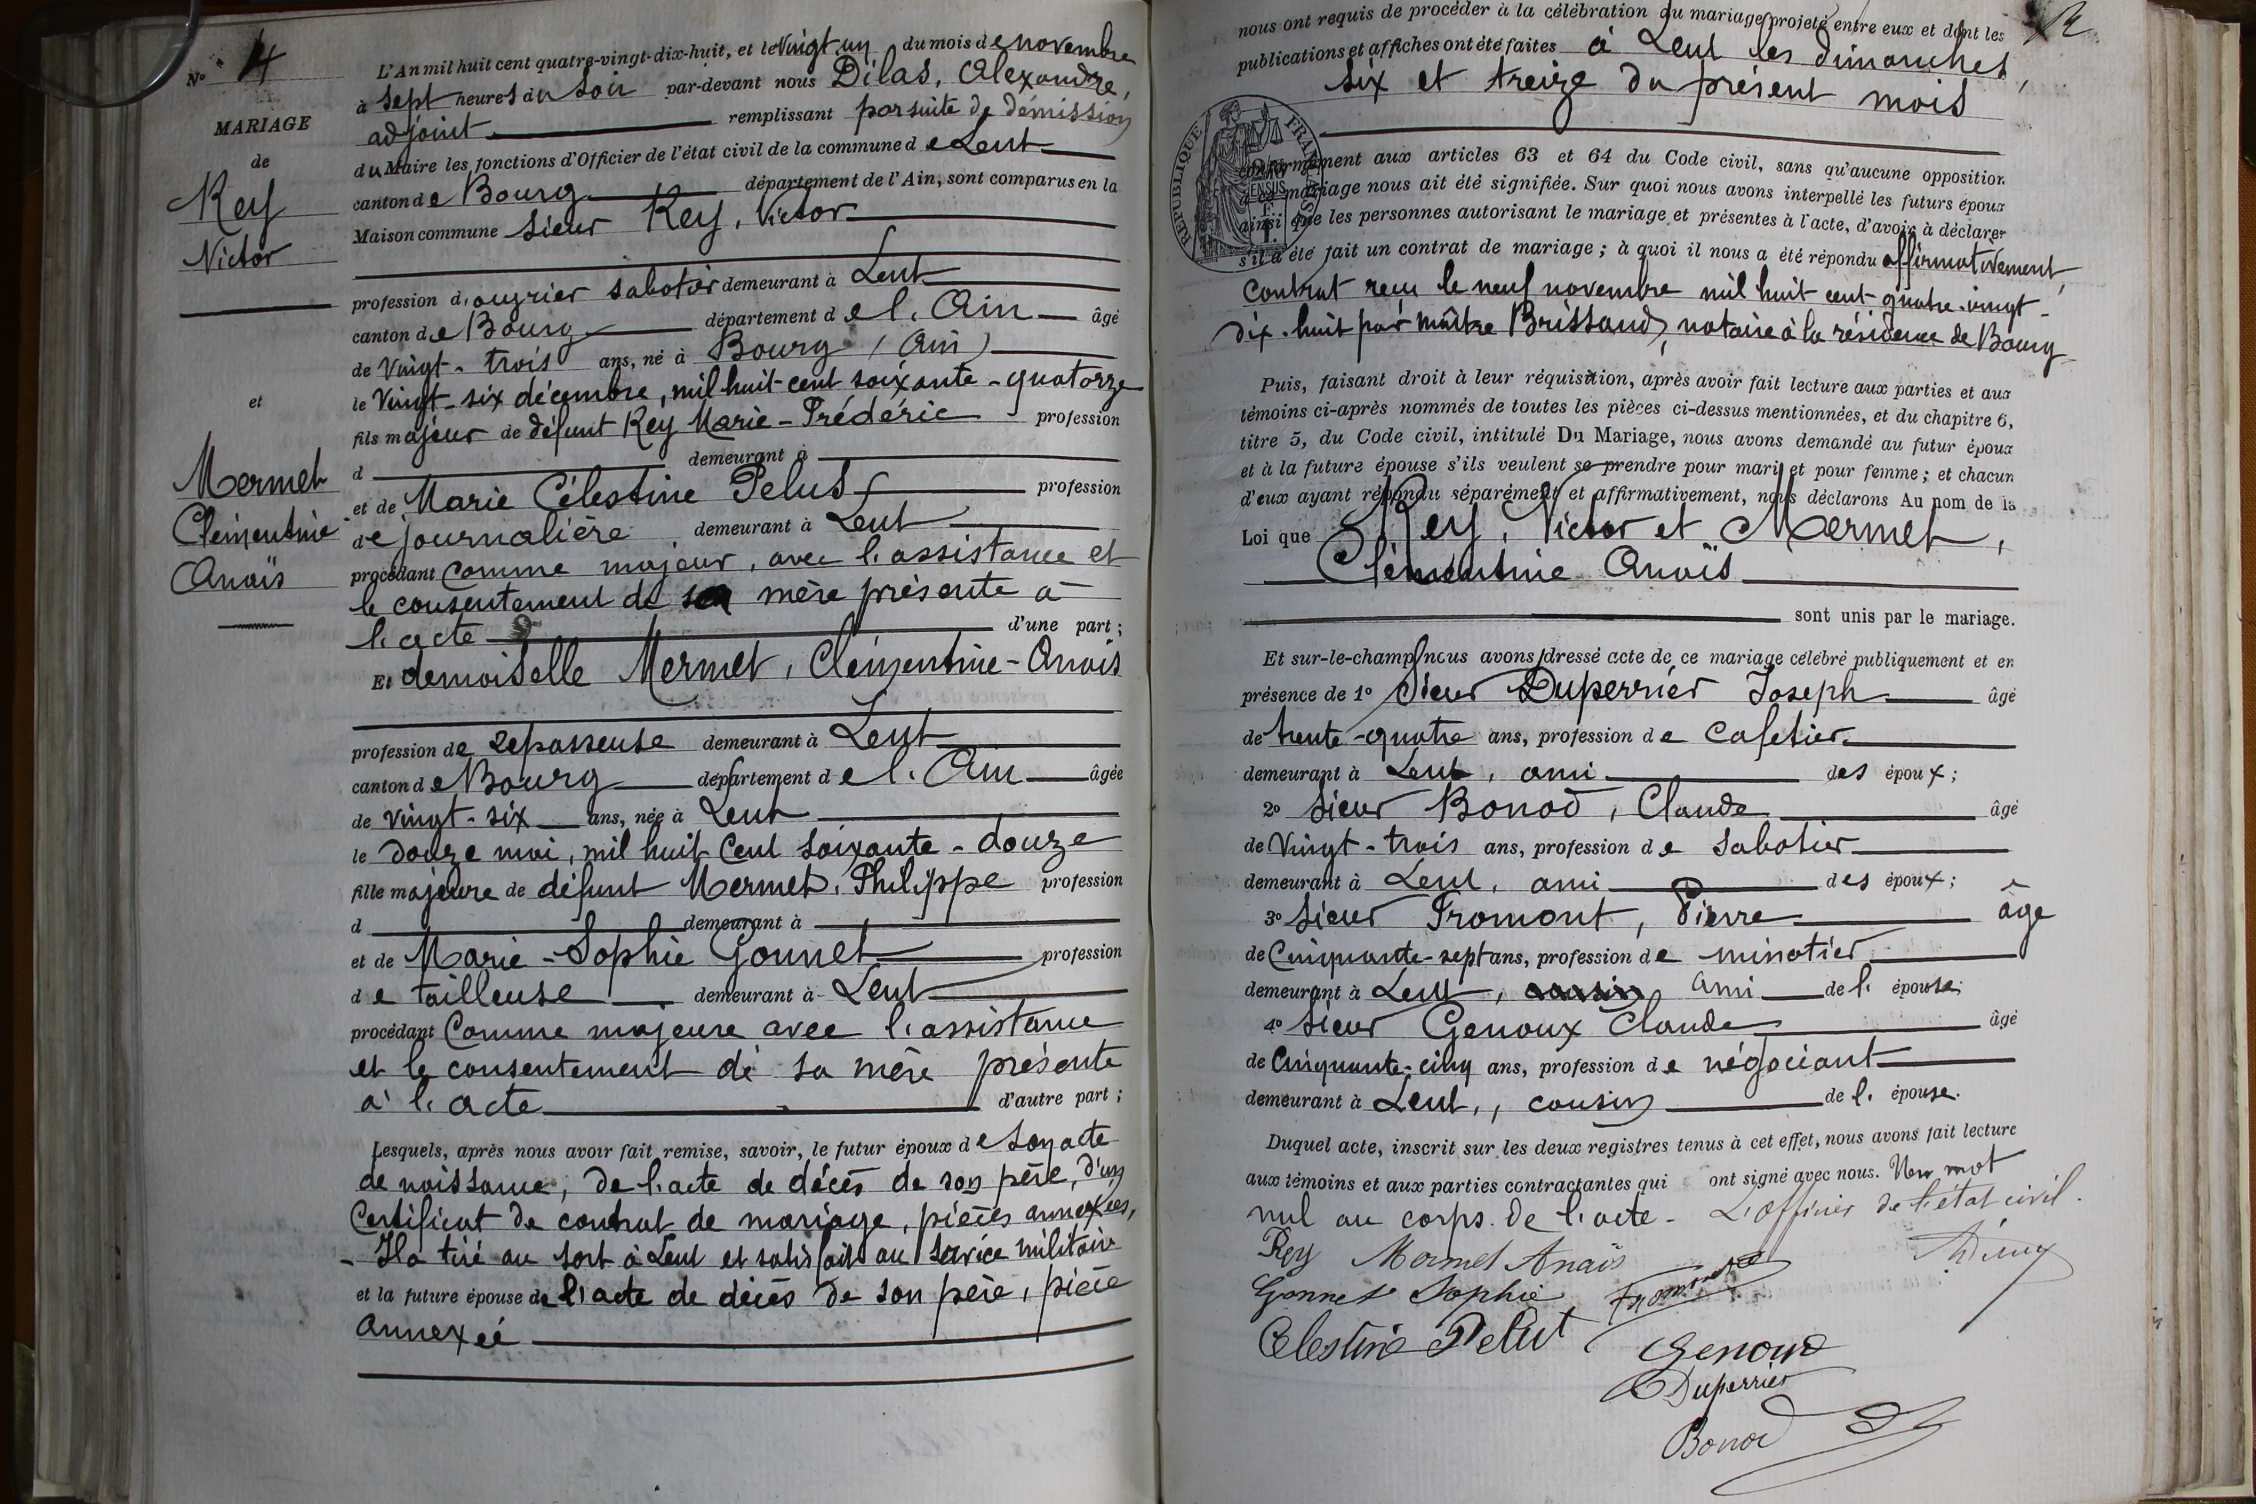 N° 14
MARIAGE
de
Rey
Victor
et
Mermet
Clémentine
Anaïs
L'An mil huit cent quatre-vingt-dix-huit, et le vingt un du mois de novembre
à sept heures du soir par-devant nous Dilas, Alexandre,
adjoint remplissant par suite de démission
du Maire les fonctions d'Officier de l'état civil de la commune de Lent
canton de Bourg département de l'Ain, sont comparus en la
Maison commune sieur Rey, Victor
profession d'ouvrier sabotier demeurant à Lent
canton de Bourg département de l'Ain âgé
de vingt-trois ans, né à Bourg (Ain)
le vingt-six décembre, mil huit cent soixante-quatorze
fils majeur de défunt Rey Marie-Frédéric profession
d demeurant à
et de Marie Célestine Pelus profession
de journalière demeurant à Lent
procédant comme majeur, avec l'assistance et
le consentement de sa mère présente à
l'acte d'une part;
Et demoiselle Mermet, Clémentine-Anaïs
profession de repasseuse demeurant à Lent
canton de Bourg département de l'Ain âgée
de vingt-six ans, née à Lent
le douze mai, mil huit cent soixante-douze
fille majeure de défunt Mermet, Philippe profession
d demeurant à
et de Marie-Sophie Gonnet profession
de tailleuse demeurant à Lent
procédant comme majeure avec l'assistance
et le consentement de sa mère présente
à l'acte d'autre part;
Lesquels, après nous avoir fait remise, savoir, le futur époux de son acte
de naissance, de l'acte de décès de son père, d'un
certificat de contrat de mariage, pièces annexées,
- Il a tiré au sort à Lent et satisfait au service militaire
et la future épouse de l'acte de décès de son père, pièce
annexée
nous ont requis de procéder à la célébration du mariage projeté entre eux et dont les
publications et affiches ont été faites à Lent les dimanches,
six et treize du présent mois
RÉPUBLIQUE FRANÇAISE
conformément aux articles 63 et 64 du Code civil, sans qu'aucune opposition
à ce mariage nous ait été signifiée. Sur quoi nous avons interpellé les futurs époux
ainsi que les personnes autorisant le mariage et présentes à l'acte, d'avoir à déclarer
s'il a été fait un contrat de mariage; à quoi il nous a été répondu affirmativement,
contrat reçu le neuf novembre mil huit cent quatre-vingt-
dix-huit par maître Brissaud, notaire à la résidence de Bourg
Puis, faisant droit à leur réquisition, après avoir fait lecture aux parties et aux
témoins ci-après nommés de toutes les pièces ci-dessus mentionnées, et du chapitre 6,
titre 5, du Code civil, intitulé Du Mariage, nous avons demandé au futur époux
et à la future épouse s'ils veulent se prendre pour mari et pour femme; et chacun
d'eux ayant répondu séparément et affirmativement, nous déclarons Au nom de la
Loi que Rey, Victor et Mermet,
Clémentine Anaïs
sont unis par le mariage.
Et sur-le-champ nous avons dressé acte de ce mariage célébré publiquement et en
présence de 1° Sieur Duperrier Joseph âgé
de trente-quatre ans, profession de cafetier
demeurant à Lent, ami des époux;
2° Sieur Bonod, Claude âgé
de vingt-trois ans, profession de sabotier
demeurant à Lent, ami des époux;
3° Sieur Fromont, Pierre âgé
de cinquante-sept ans, profession de minotier
demeurant à Lent, cousin ami de l'épouse;
4° Sieur Genoux Claude âgé
de cinquante-cinq ans, profession de négociant
demeurant à Lent, cousin de l'épouse.
Duquel acte, inscrit sur les deux registres tenus à cet effet, nous avons fait lecture
aux témoins et aux parties contractantes qui ont signé avec nous. Un mot
nul au corps de l'acte. L'officier de l'état civil.
Rey Mermet Anaïs
Gonnet Sophie Fromont
Célestine Pelut
Genoux
Duperrier
Bonod